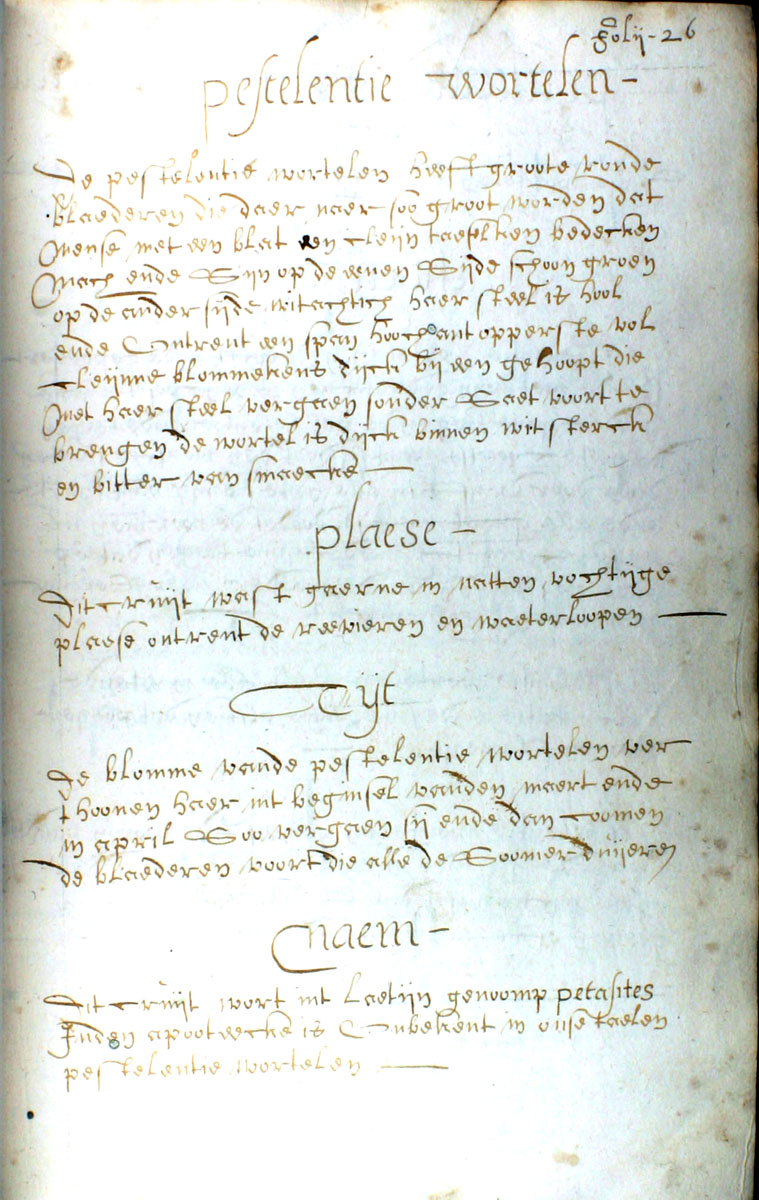 folij - 26
pestelentie wortelen -
De pestelentie wortelen heeft groote ronde
blaederen die daer naer soo groot worden dat
mense met een blat een cleijn taefelken bedecken
mach ende Sijn op de eenen Sijde schoon groen
op de ander sijde witachtich haer steel is hool
ende Contrent een span hooch ant opperste vol
cleijnne blommekens dijck bij een gehoopt die
met haer steel vergaen sonder Saet voort te
brengen de wortel is dijck binnen wit sterck
en bitter van smaecke —
plaese -
Dit cruijt wast gaerne in natten vochtijge
plaese ontrent de reevieren en waeterloopen —
Tijt
De blomme vande pestelentie wortelen ver
thoonen haer int beginsel vanden maert ende
in april Soo vergaen sij ende dan Coomen
de blaederen voort die alle de Soomer duijeren
Naem -
Dit cruijt wort int Laetijn genoomp petasites
Inden apooteecke is Onbekent in onse taelen
pestelentie wortelen —